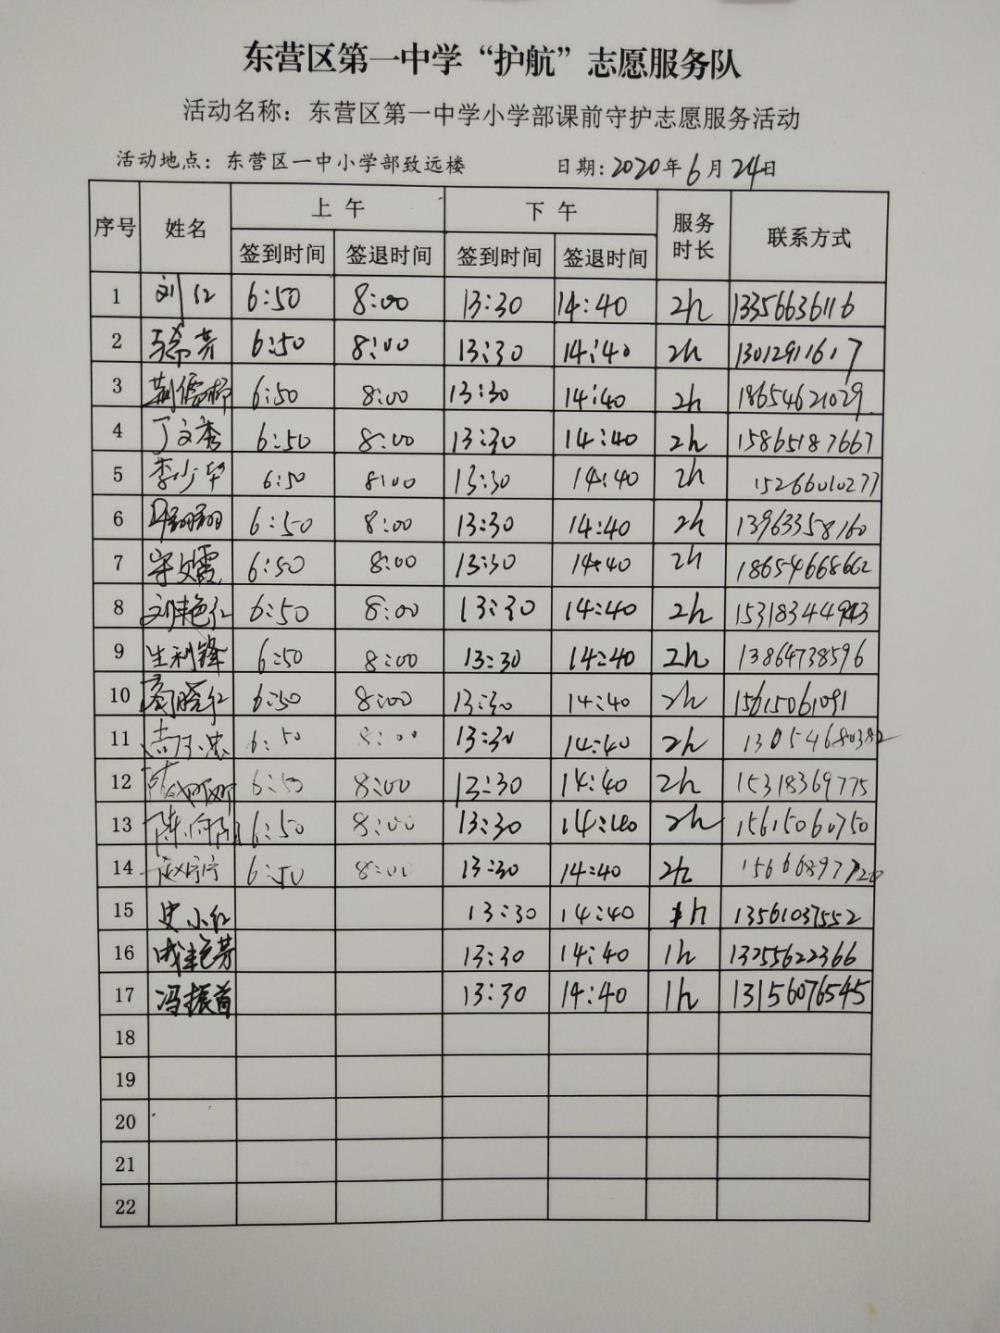 东营区第一中学“护航”志愿服务队
活动名称：东营区第一中学小学部课前守护志愿服务活动
活动地点：东营区一中小学部致远楼 日期：2020年6月24日
序号 姓名 上午 下午 服务时长 联系方式
签到时间 签退时间 签到时间 签退时间
1 刘红 6:50 8:00 13:30 14:40 2h 13356636116
2 芳 6:50 8:00 13:30 14:40 2h 13012911617
3 荆儒 6:50 8:00 13:30 14:40 2h 18654621029
4 丁文秀 6:50 8:00 13:30 14:40 2h 15865187667
5 李少华 6:50 8:00 13:30 14:40 2h 15266010277
6 翔翔 6:50 8:00 13:30 14:40 2h 13963358160
7 宋文霞 6:50 8:00 13:30 14:40 2h 18654668662
8 刘艳红 6:50 8:00 13:30 14:40 2h
9 生利锋 6:50 8:00 13:30 14:40 2h 13864738596
10 晓红 6:50 8:00 13:30 14:40 2h 15615061091
11 6:50 8:00 13:30 14:40 2h 13054680382
12 娜娜 6:50 8:00 13:30 14:40 2h 15318369775
13 陈向阳 6:50 8:00 13:30 14:40 2h 15615060750
14 赵宁宁 6:50 8:00 13:30 14:40 2h
15 史小红 13:30 14:40 1h 13561037552
16 成艳芳 13:30 14:40 1h 13255622366
17 冯振首 13:30 14:40 1h 13156076545
18
19
20
21
22